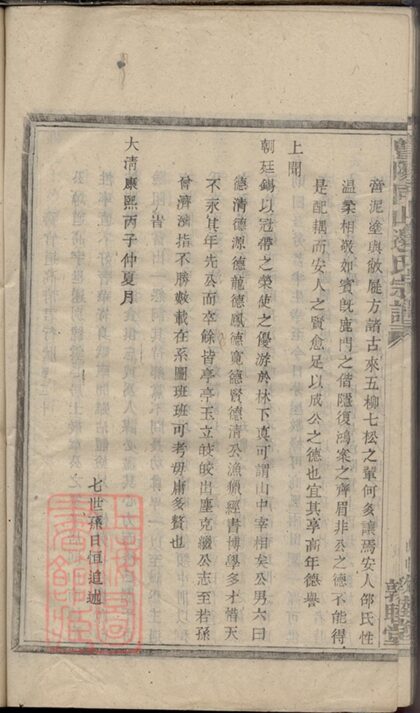 啻泥塗與敝屣方諸古來五柳七松之輩何多讓焉安人邵氏性
温柔相敬如賓既鹿門之偕隱復鴻案之齊眉非公之德不能得
是配耦而安人之賢愈足以成公之德也宜其享高年德譽
上聞
朝廷錫以冠帶之榮使之優游於林下真可謂山中宰相矣公男六曰
德清德源德龍德鳳德寬德賢德清公漁獵經書博學多才惜天
不永其年先公而卒餘皆亭亭玉立皎皎出塵克繼公志至若孫
曾濟濟指不勝數載在系圖班班可考毋庸多贅也
大清康熙丙子仲夏月
七世孫日恒追述